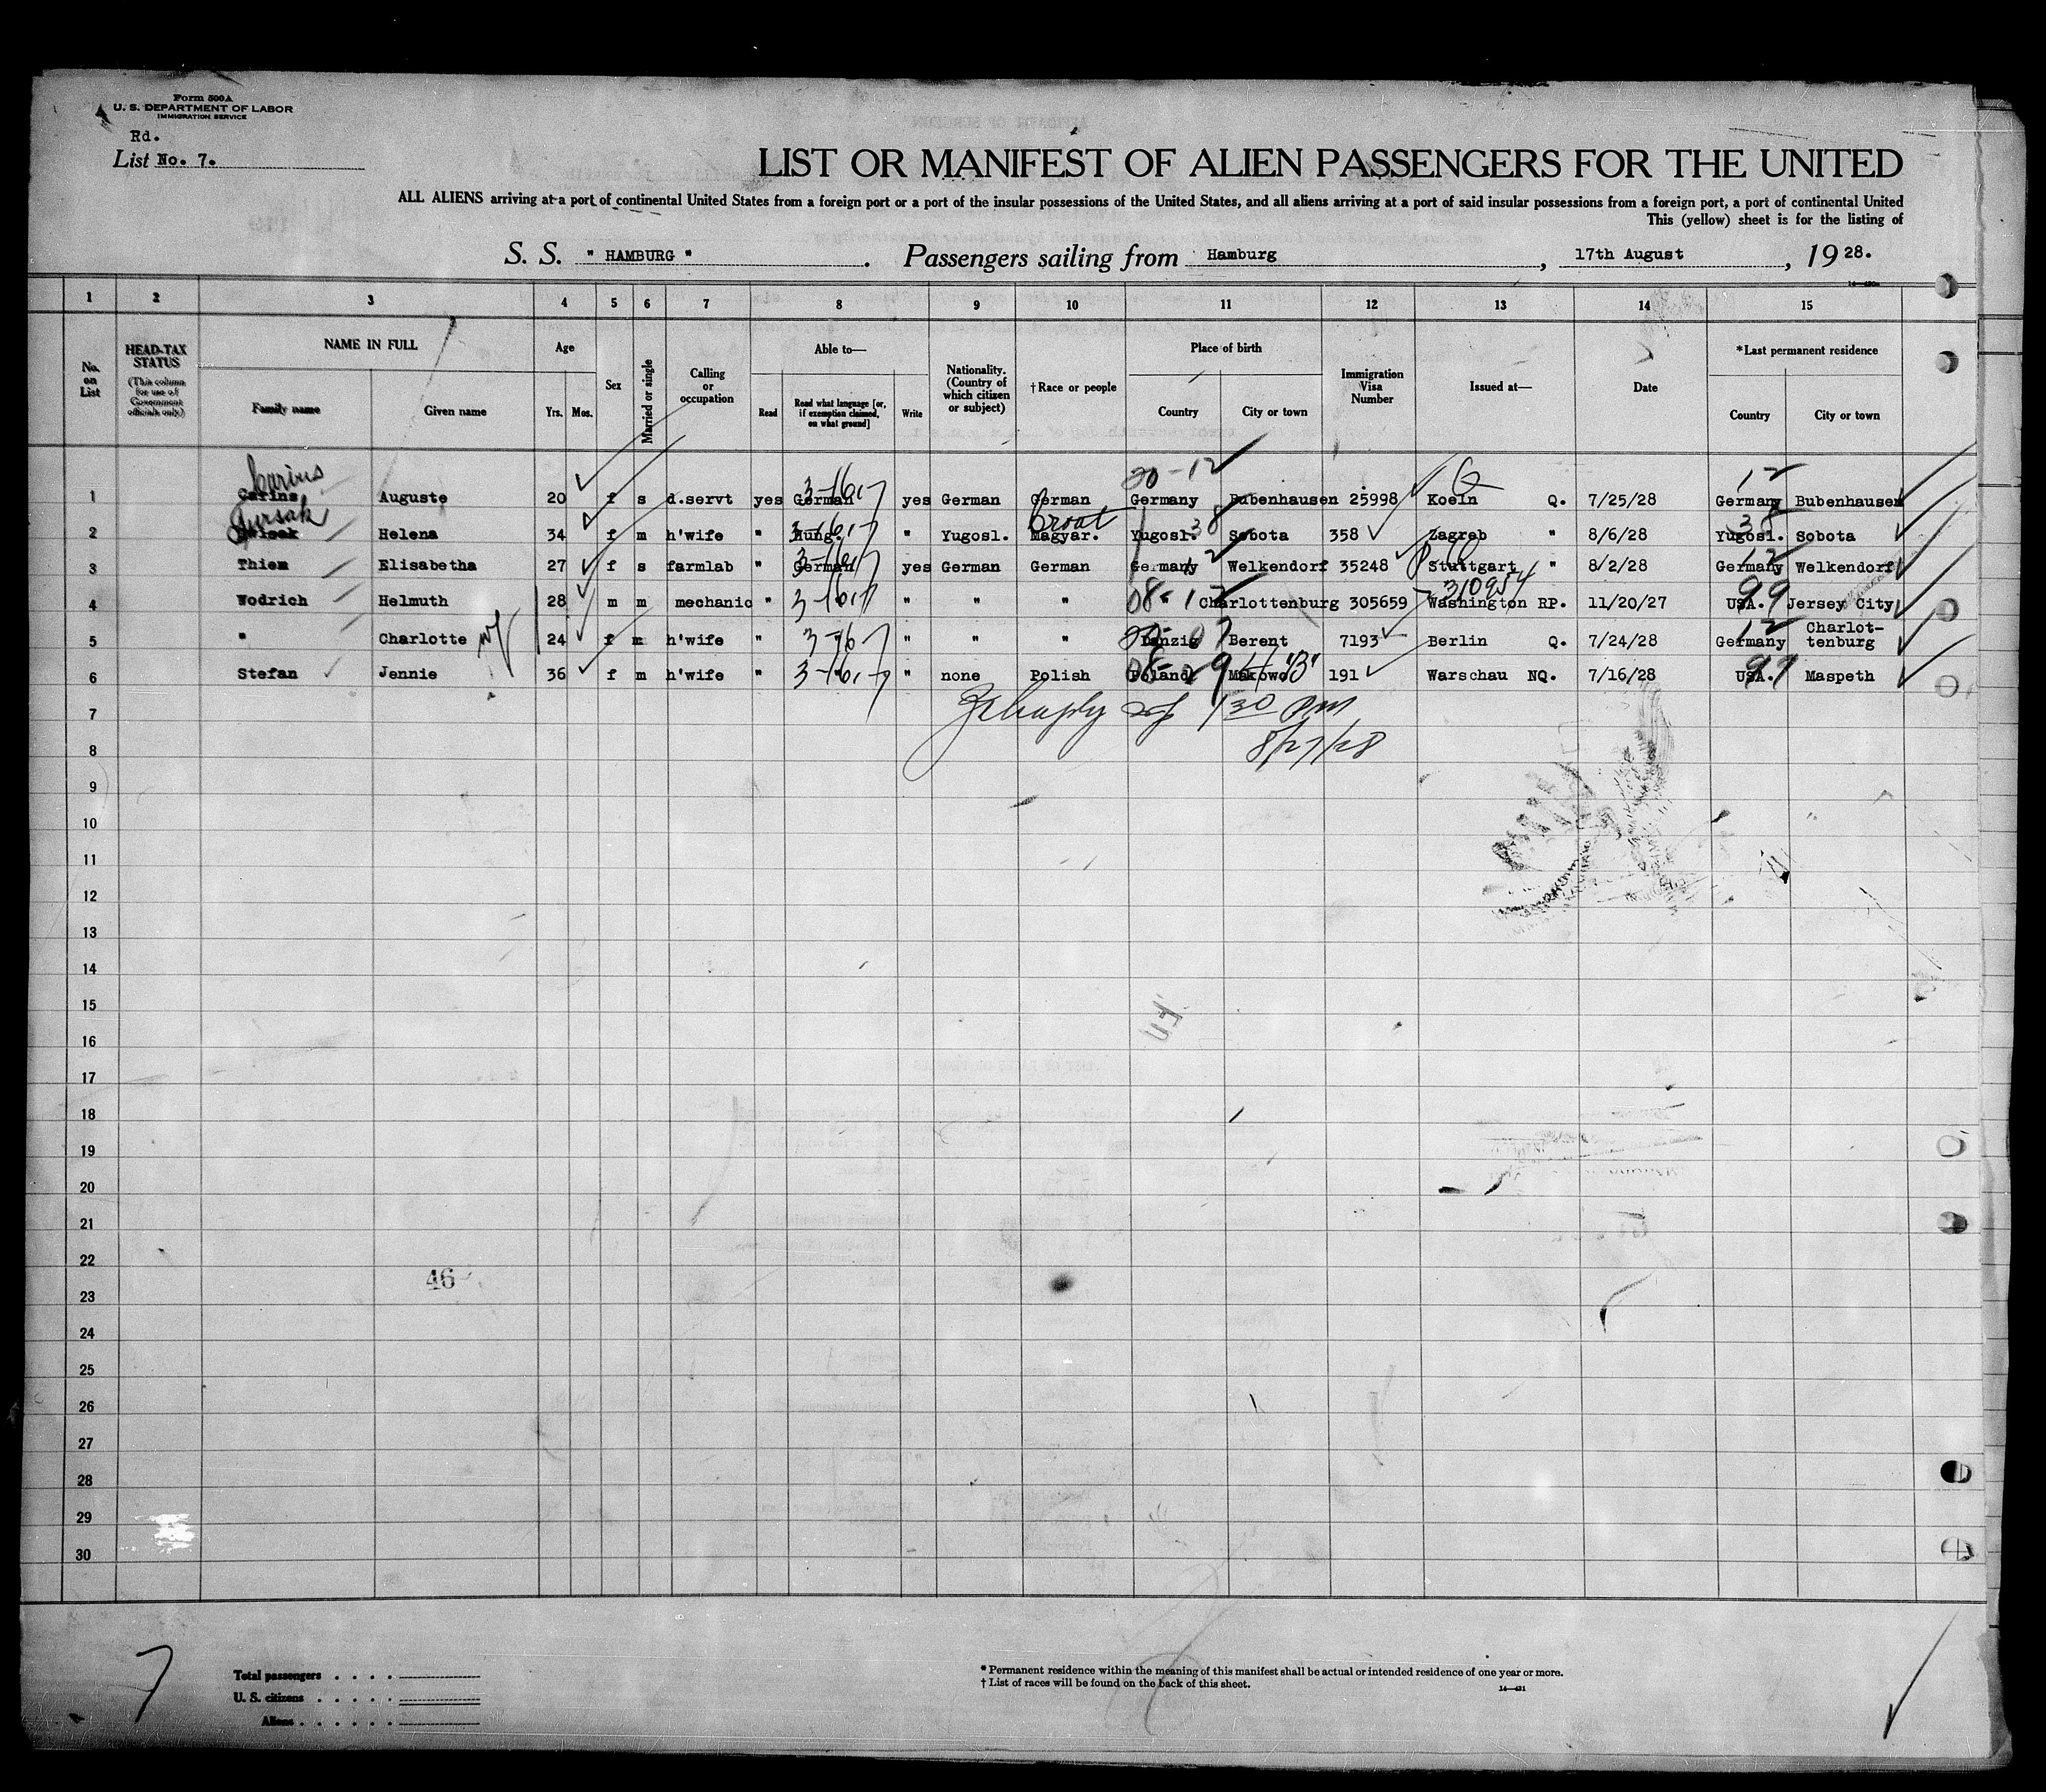 Form 500A
U. S. DEPARTMENT OF LABOR
IMMIGRATION SERVICE
Rd.
List No. 7.
LIST OR MANIFEST OF ALIEN PASSENGERS FOR THE UNITED
ALL ALIENS arriving at a port of continental United States from a foreign port or a port of the insular possessions of the United States, and all aliens arriving at a port of said insular possessions from a foreign port, a port of continental United
This (yellow) sheet is for the listing of
S. S. " HAMBURG ". Passengers sailing from Hamburg, 17th August, 1928.
1 2 3 4 5 6 7 8 9 10 11 12 13 14 15
No. on List
HEAD-TAX STATUS
(This column for use of Government officials only.)
NAME IN FULL
Family name Given name
Age
Yrs. Mos.
Sex
Married or single
Calling or occupation
Able to—
Read Read what language [or, if exemption claimed, on what ground] Write
Nationality. (Country of which citizen or subject)
† Race or people
Place of birth
Country City or town
Immigration Visa Number
Issued at—
Date
*Last permanent residence
Country City or town
Carius 20-12 Q 12
1 Carins Auguste 20 f s d.servt yes German yes German German Germany Bubenhausen 25998 Koeln Q. 7/25/28 Germany Bubenhausen
Croat 38 38
2 Helena 34 f m h'wife " Hung. " Yugosl. Magyar. Yugosl. Sobota 358 Zagreb " 8/6/28 Yugosl. Sobota
3 Thiem Elisabetha 27 f s farmlab " German yes German German Germany Welkendorf 35248 Stuttgart " 8/2/28 Germany Welkendorf
310954 99
4 Wodrich Helmuth 28 m m mechanic " " " " Charlottenburg 305659 Washington RP. 11/20/27 USA. Jersey City
5 " Charlotte 24 f m h'wife " " " " Danzig Berent 7193 Berlin Q. 7/24/28 Germany Charlot-tenburg
6 Stefan Jennie 36 f m h'wife " " none Polish Poland Makowo 191 Warschau NQ. 7/16/28 USA. Maspeth
7 1 30 PM
8 8/27/28
9
10
11
12
13
14
15
16
17
18
19
20
21
22
46
23
24
25
26
27
28
29
30
7
Total passengers . . . .
U. S. citizens . . . . .
Aliens . . . . . .
* Permanent residence within the meaning of this manifest shall be actual or intended residence of one year or more.
† List of races will be found on the back of this sheet.
14—431